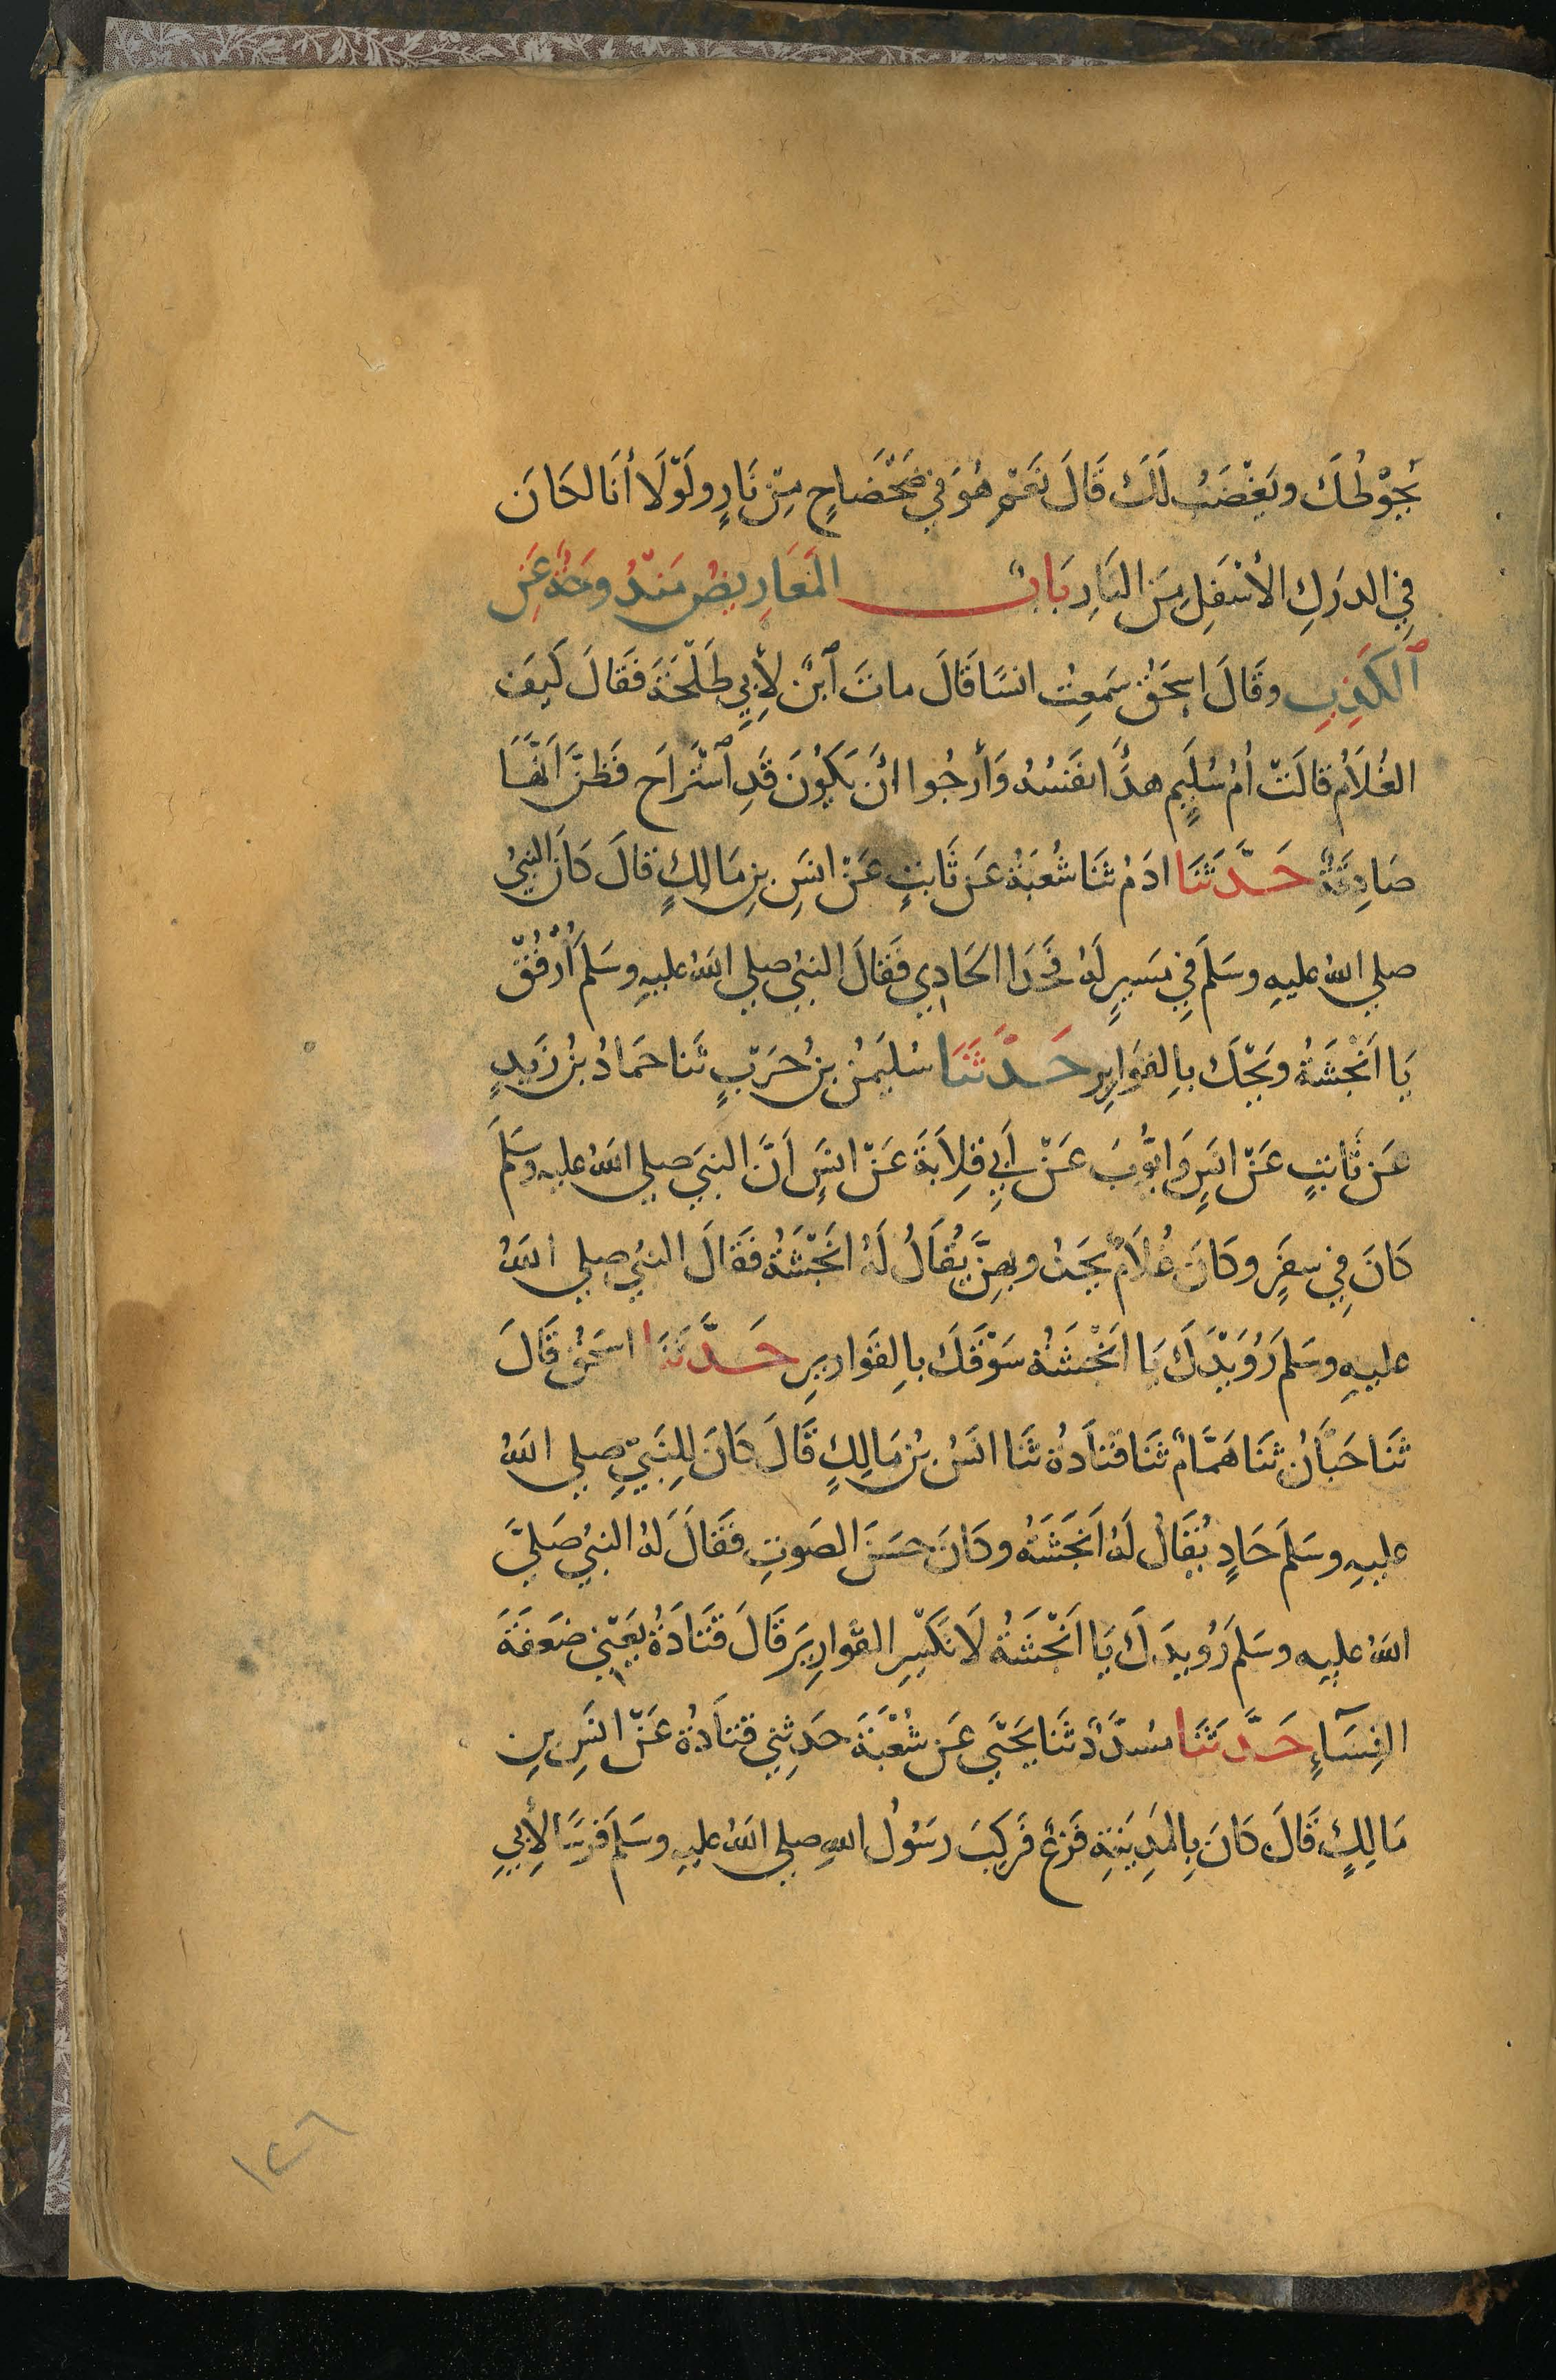 يَحُوْطُكَ ويَغْضَبُ لَكَ قَالَ نَعَمْ هُوَ فِي ضَحْضَاحٍ مِنْ نَارٍ ولَوْلَا أنَا لكَانَ
فِي الدرَكِ الأسْفَلِ مِنَ النَارِ بَابٌ المَعَارِيضُ مَنْدُوحَةٌ عَنِ
ٱلكَذِبِ وقَالَ اسحَقُ سَمعِتُ انسًا قَالَ ماتَ ٱبْنٌ لِأبِي طَلْحَةَ فَقَالَ كَيفَ
الغُلَامُ قالَتْ أمُ سُلَيمٍ هدَأ نفَسُهُ وَأرجُوا انْ يَكوُنَ قَدِ ٱسْتَراَح فَظنَّ اَنَّهَا
صَادِقَةٌ حَدَّثَنَا ادَمُ ثنَا شُعبَةُ عَن ثَابتٍ عَنْ انسَِ بنِ مَالِكٍ قالَ كاَن النبيُ
صلي اللهُ عليهِ وسَلمَ فِي مسَيرٍ لهَُ فَحَدَا الحَادِي فقَالَ النبيُ صلي اللهُ عليهِ وسَلمَ اُرْفُقْ
يَا اَنْجَشَةُ ويَحْكَ باِلقوَاريِرِ حَدَّثَنَا سُليَمنُ بنُ حَربٍ ثنا حمَادُ بنُ زَيدٍ
عَن ثَابتٍ عَنْ انسٍَ وَايُّوبَ عَنْ اَبِي قِلاَبَةَ عَنْ انسٍَ اَنَّ النبيَ صلي اللهُ عليهِ وسَلمَ
كَانَ فِي سفَرٍ وكَانَ غُلاَمٌ يَحدُو بهِنَّ يُقَالُ لَهُ انَجْشَةُ فقَالَ النبيُ صلي اللهُ
عليهِ وسَلمَ رُوَيْدَكَ يَا انَجْشَةُ سَوْقَكَ باِلقوَاريرِ حَدَّثَنَا اسحَقُ قَالَ
ثنَا حَبَّانُ ثنَا هَمَّامٌ ثنَا قتَادَةُ ثنَا انَسُ بنُ مَالِكٍ قَالَ كَانَ لِلنَبيِّ صلي اللهُ
عليهِ وسَلمَ حَادٍ يُقَالُ لَهُ اَنجَشَةُ وكَانَ حسَنَ الصَوتِ فقَالَ لَهُ النبيُ صَليَّ
اللهُ عليهِ وسَلمَ رُويدَكَ يَا اَنْجَشَةُ لَا تَكْسِرِ القَوارِيرَ قَالَ قتَادَةُ يَعنْي ضَعَفَةَ
النِسَآءِ حَدَّثَنَا مسُدَّدٌ ثنَا يَحْيَي عَن شُعْبَةَ حَدثِني قتَادَةُ عَنْ انسَِ بنِ
مَالِكٍ قَالَ كَانَ بِالمَدِينَةِ فَزَعٌ فَركِبَ رسَوُلُ اللهِ صلي اللهُ عليهِ وسَلمَ فرَسًا لِأبِي
١٢٦